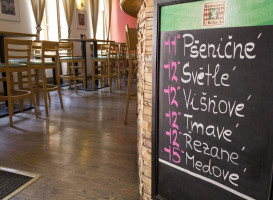 11° Pšeničné
12° Světlé
12° Višňové
12° Tmavé
12° Řezané
15° Medové